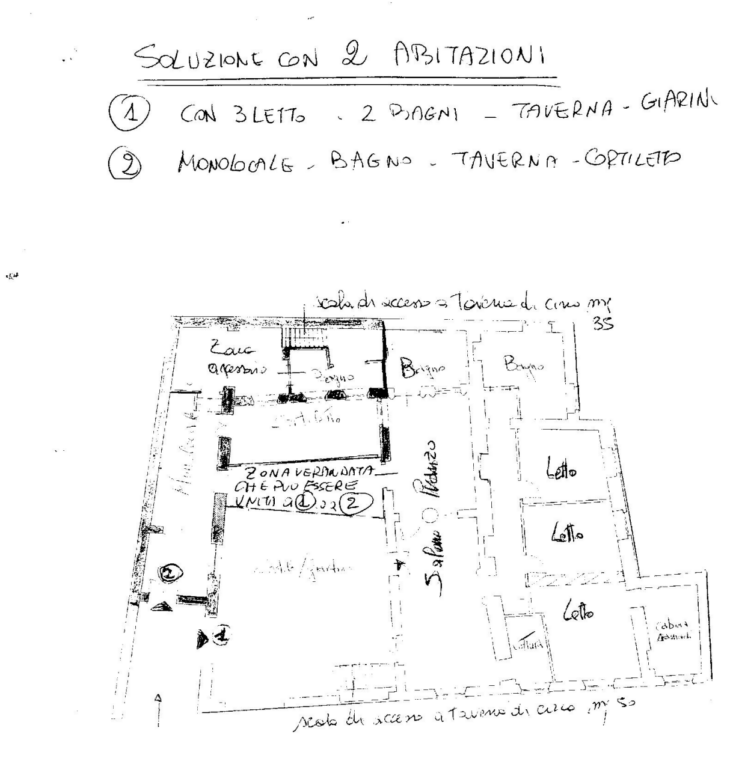 SOLUZIONE CON 2 ABITAZIONI
1 CON 3 LETTO - 2 BAGNI - TAVERNA - GIARINI
2 MONOLOCALE - BAGNO - TAVERNA - CORTILETTO
scala di accesso a Taverna di circa mq
35
Zona
Bagno
Bagno
Bagno
Cortiletto
Monolocale
ZONA VERANDATA
CHE PUÒ ESSERE
UNITA a 1 o a 2
Pranzo
Salone
Letto
Letto
Letto
cortile/giardino
2
1
Cabina
Armadi
scala di accesso a Taverna di circa mq 50